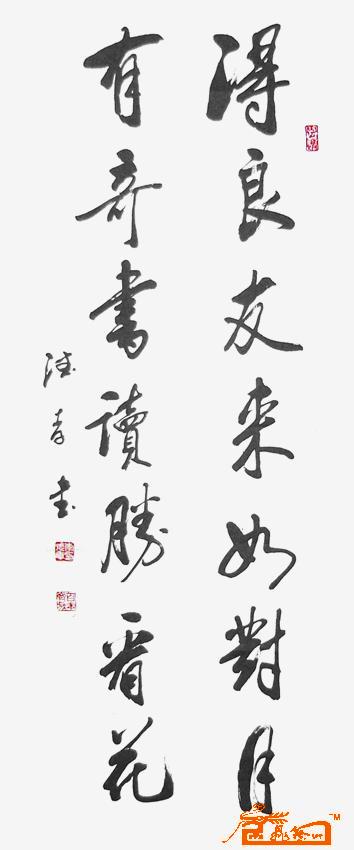 得良友来如對月
有奇書讀勝看花